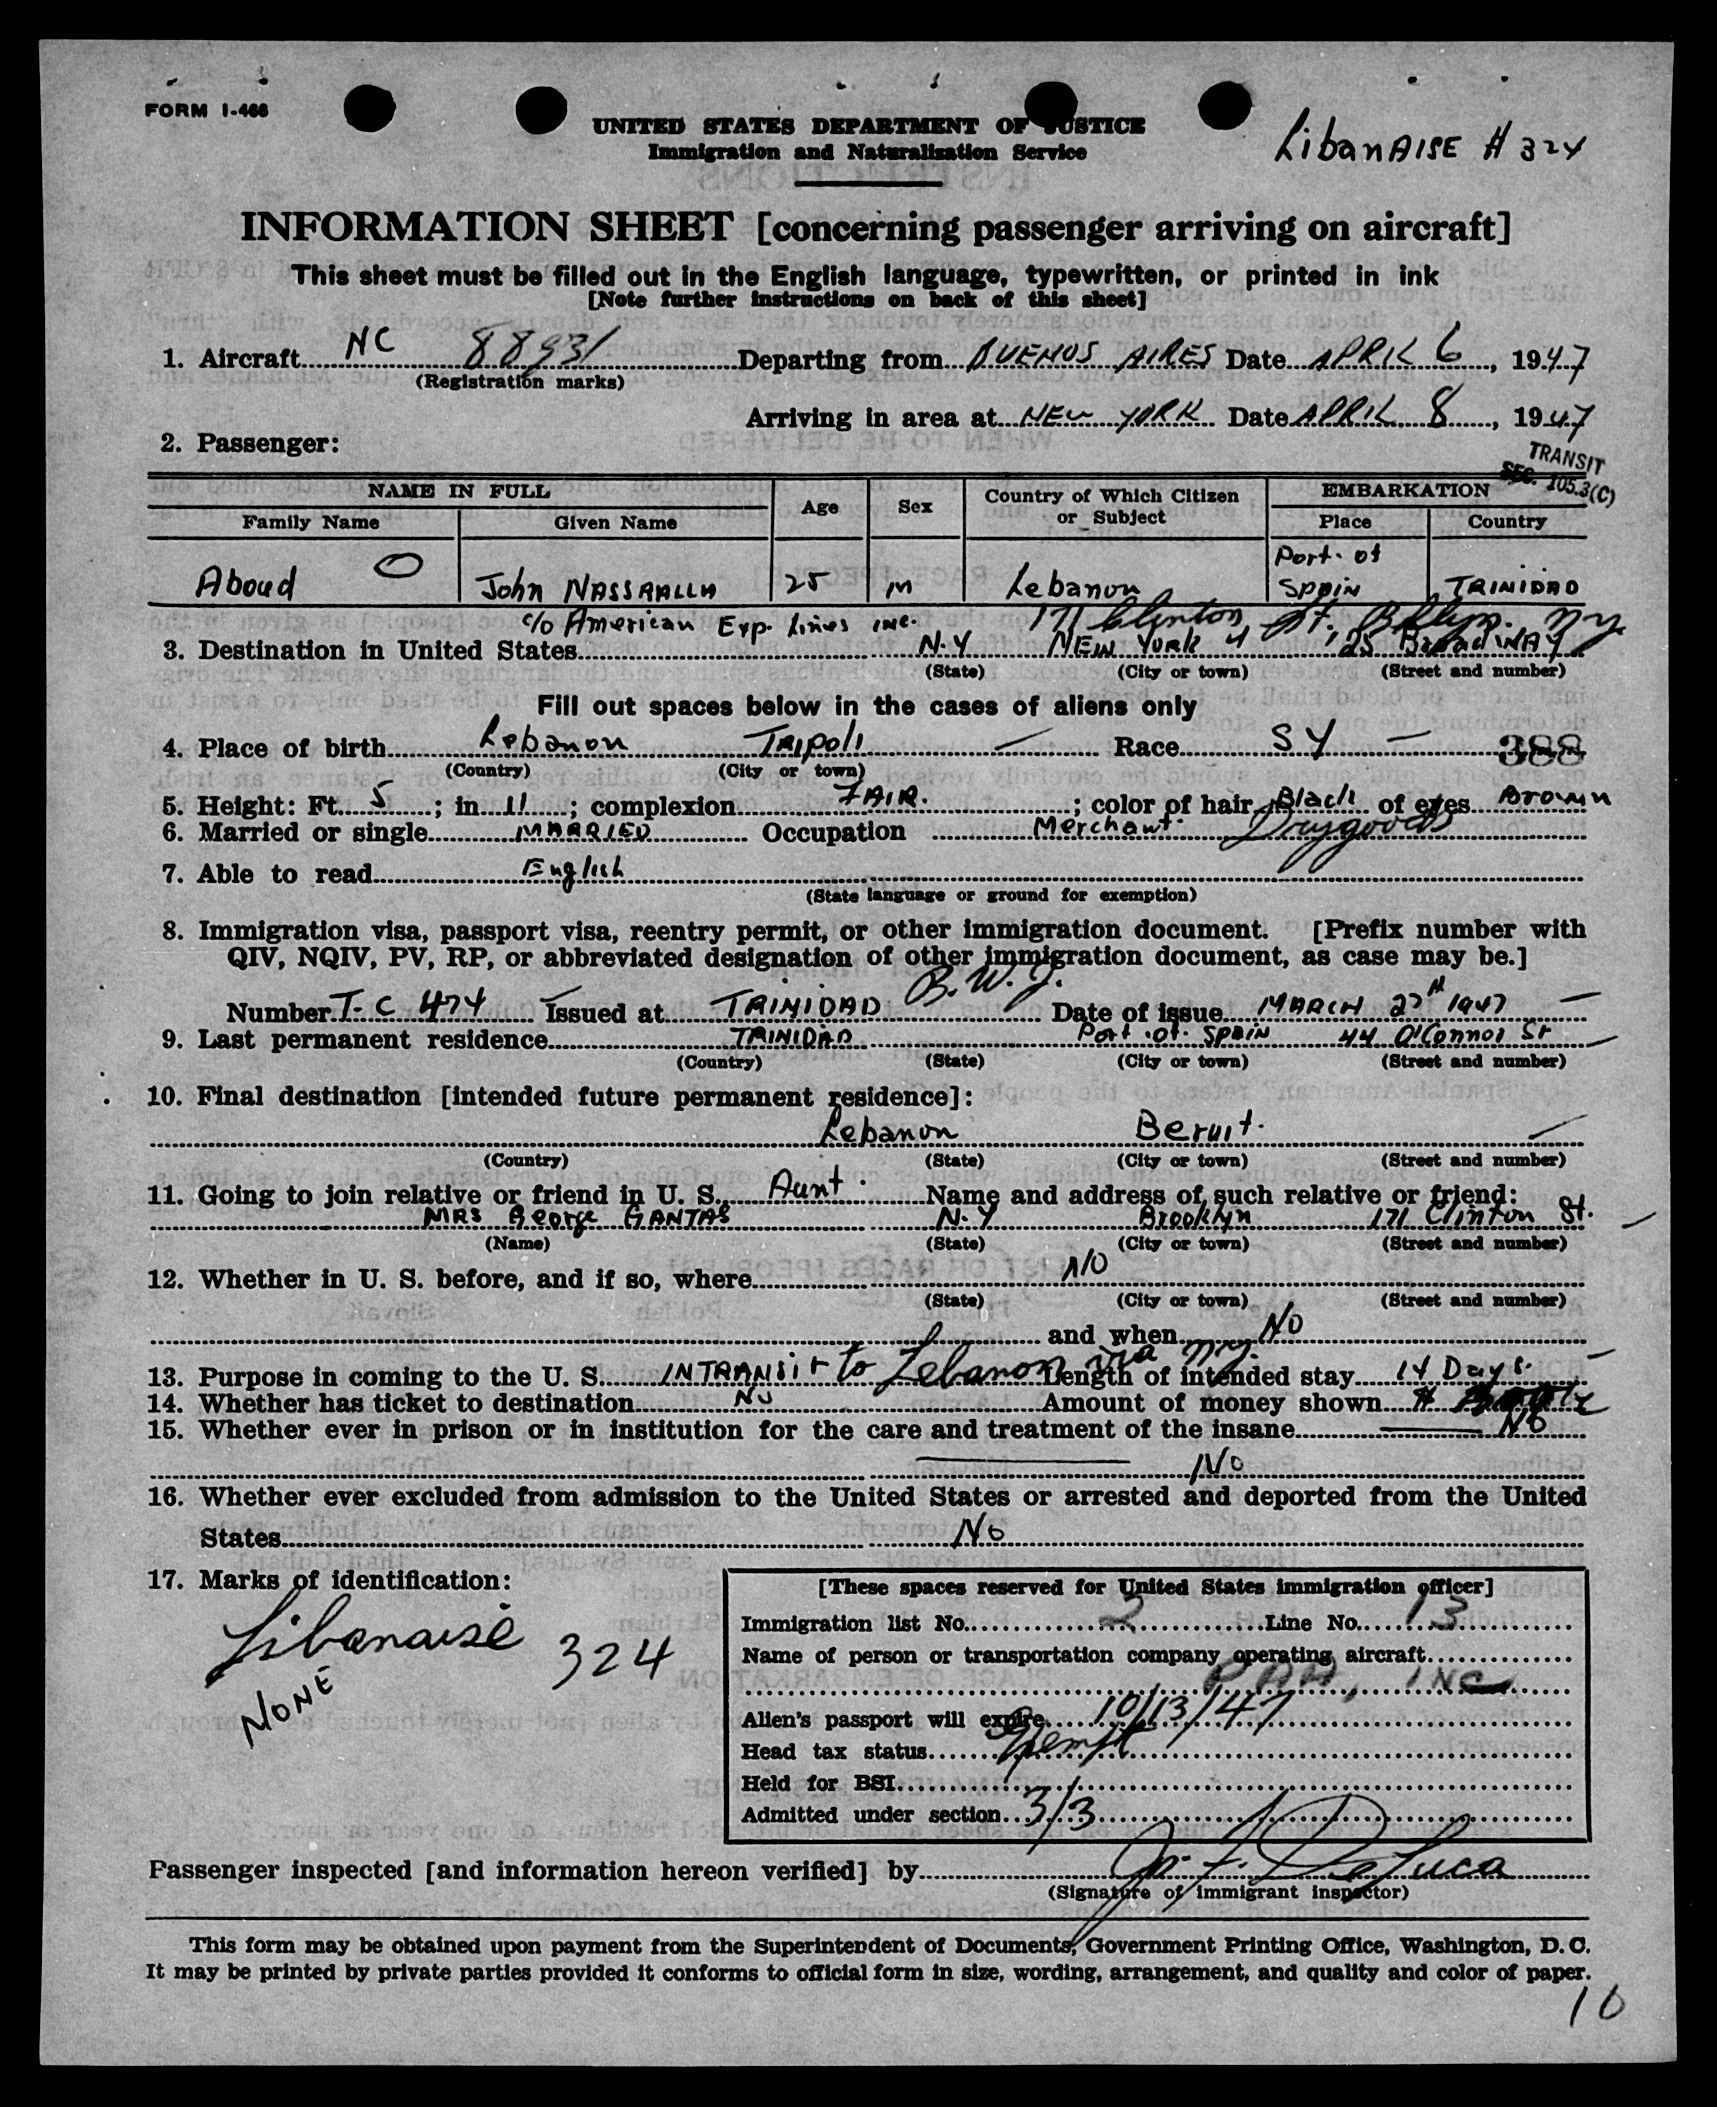 FORM I-466
UNITED STATES DEPARTMENT OF JUSTICE
Immigration and Naturalization Service
LibanAISE # 324
INFORMATION SHEET [concerning passenger arriving on aircraft]
This sheet must be filled out in the English language, typewritten, or printed in ink
[Note further instructions on back of this sheet]
1. Aircraft NC 88931 Departing from BUENOS AIRES Date APRIL 6, 1947
(Registration marks)
Arriving in area at NEW YORK Date APRIL 8, 1947
2. Passenger:
TRANSIT
SEC. 105.3(C)
NAME IN FULL Age Sex Country of Which Citizen or Subject EMBARKATION
Family Name Given Name Place Country
Aboud John NASSRALLA 25 M Lebanon Port. of SPAIN TRINIDAD
c/o American Exp. Lines INC. 171 Clinton St. Bklyn. NY
3. Destination in United States N.Y NEW YORK 4 25 BroadWAY
(State) (City or town) (Street and number)
Fill out spaces below in the cases of aliens only
4. Place of birth Lebanon TRIPOLI — Race SY — 388
(Country) (City or town)
5. Height: Ft. 5; in. 11; complexion FAIR.; color of hair Black of eyes Brown
6. Married or single MARRIED Occupation Merchant Drygoods
7. Able to read English
(State language or ground for exemption)
8. Immigration visa, passport visa, reentry permit, or other immigration document. [Prefix number with
QIV, NQIV, PV, RP, or abbreviated designation of other immigration document, as case may be.]
Number T-C 474 Issued at TRINIDAD B.W.I. Date of issue MARCH 27th 1947 —
9. Last permanent residence TRINIDAD Port of Spain 44 O'Connor St
(Country) (State) (City or town) (Street and number)
10. Final destination [intended future permanent residence]:
Lebanon Beruit.
(Country) (State) (City or town) (Street and number)
11. Going to join relative or friend in U. S. Aunt. Name and address of such relative or friend:
MRS George GANTAS N.Y Brooklyn 171 Clinton St.
(Name) (State) (City or town) (Street and number)
12. Whether in U. S. before, and if so, where NO
(State) (City or town) (Street and number)
and when No
13. Purpose in coming to the U. S. INTRANSIT to Lebanon via N.Y. Length of intended stay 14 Days.
14. Whether has ticket to destination No Amount of money shown $
15. Whether ever in prison or in institution for the care and treatment of the insane No
No
16. Whether ever excluded from admission to the United States or arrested and deported from the United
States No
17. Marks of identification:
Libanaise 324
NONE
[These spaces reserved for United States immigration officer]
Immigration list No. 2 Line No. 13
Name of person or transportation company operating aircraft
PAA, INC
Alien's passport will expire 10/13/47
Head tax status Exempt
Held for BSI
Admitted under section 3/3
Passenger inspected [and information hereon verified] by Jo. F. DeLuca
(Signature of immigrant inspector)
This form may be obtained upon payment from the Superintendent of Documents, Government Printing Office, Washington, D. C.
It may be printed by private parties provided it conforms to official form in size, wording, arrangement, and quality and color of paper.
10